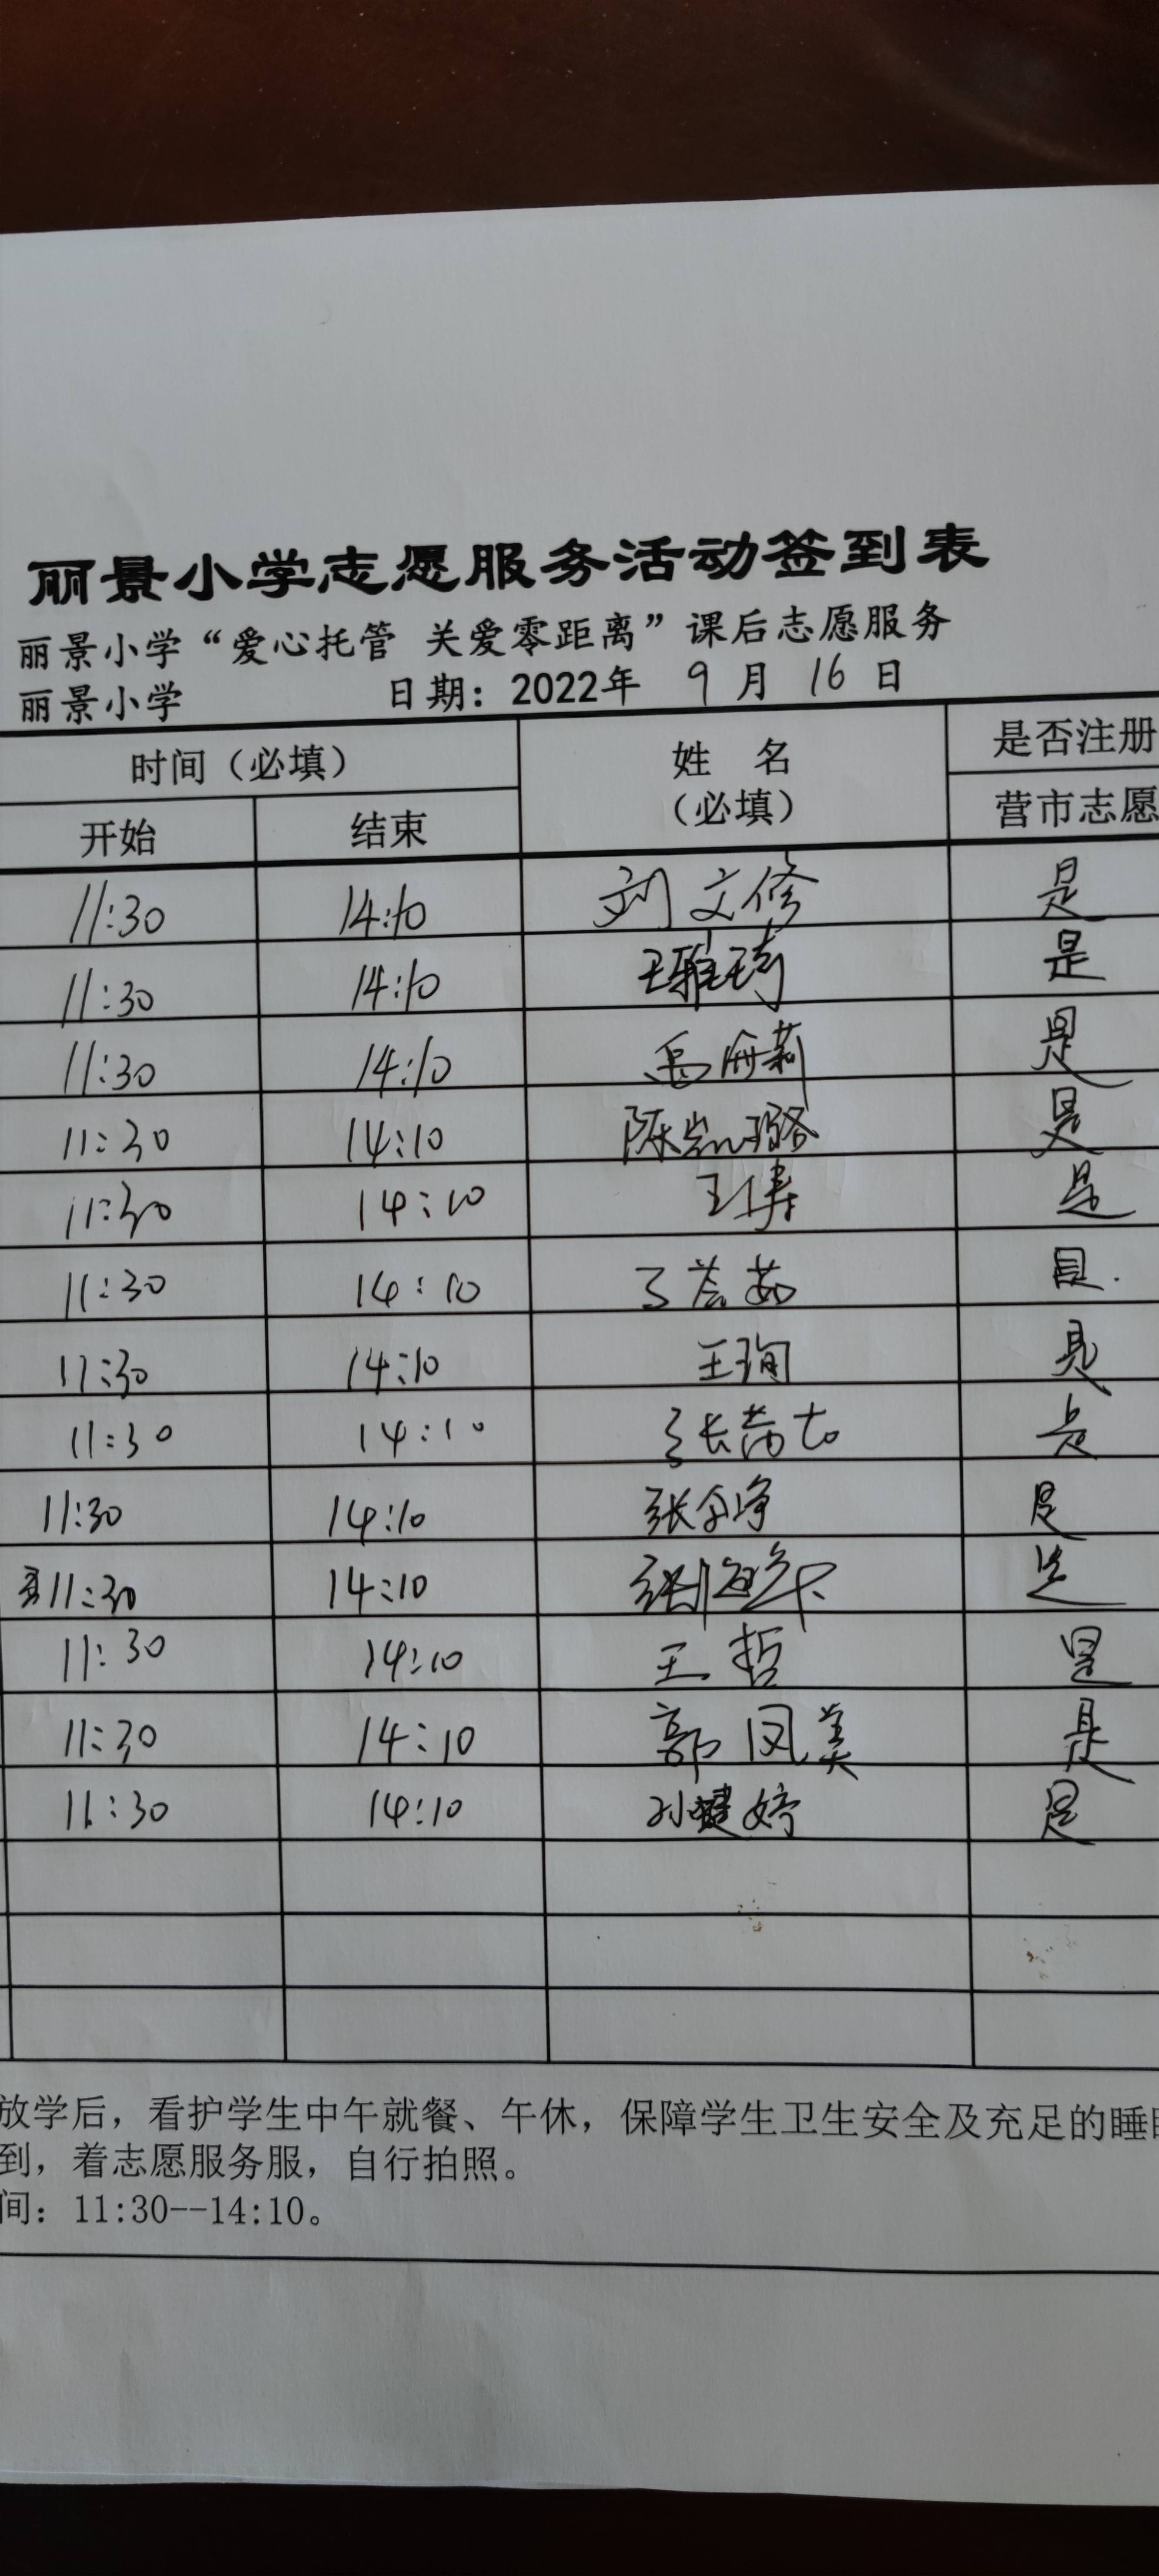 丽景小学志愿服务活动签到表
丽景小学“爱心托管 关爱零距离”课后志愿服务
丽景小学 日期：2022年 9 月 16 日
时间（必填） 姓 名（必填） 是否注册
开始 结束 营市志愿
11:30 14:10 刘文修 是
11:30 14:10 王雅琦 是
11:30 14:10 是
11:30 14:10 陈凯璐 是
11:30 14:10 王倩 是
11:30 14:10 是
11:30 14:10 王珣 是
11:30 14:10 张 是
11:30 14:10 张 是
11:30 14:10 张 是
11:30 14:10 王哲 是
11:30 14:10 郭凤美 是
11:30 14:10 孙婕婷 是
放学后，看护学生中午就餐、午休，保障学生卫生安全及充足的睡
到，着志愿服务服，自行拍照。
间：11:30--14:10。